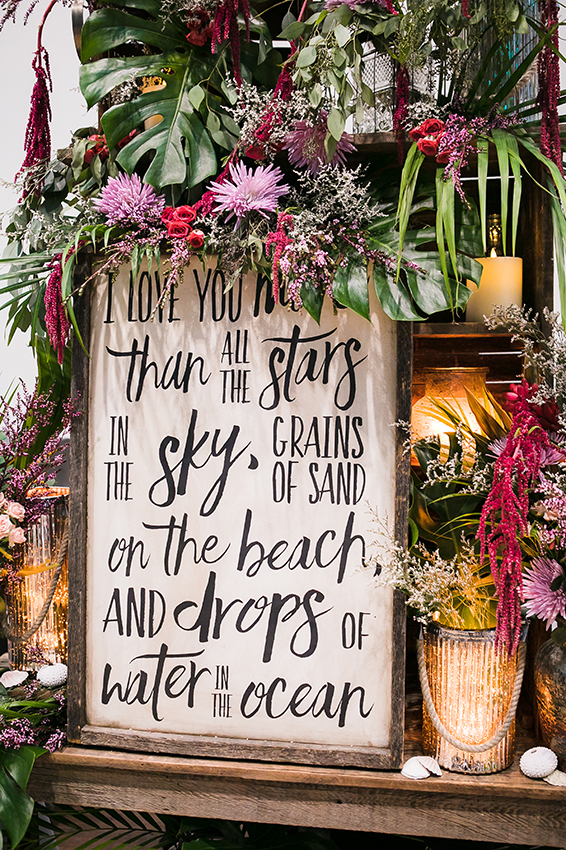 I LOVE YOU
than ALL THE stars
IN THE sky, GRAINS OF SAND
on the beach,
AND drops OF
water IN THE ocean